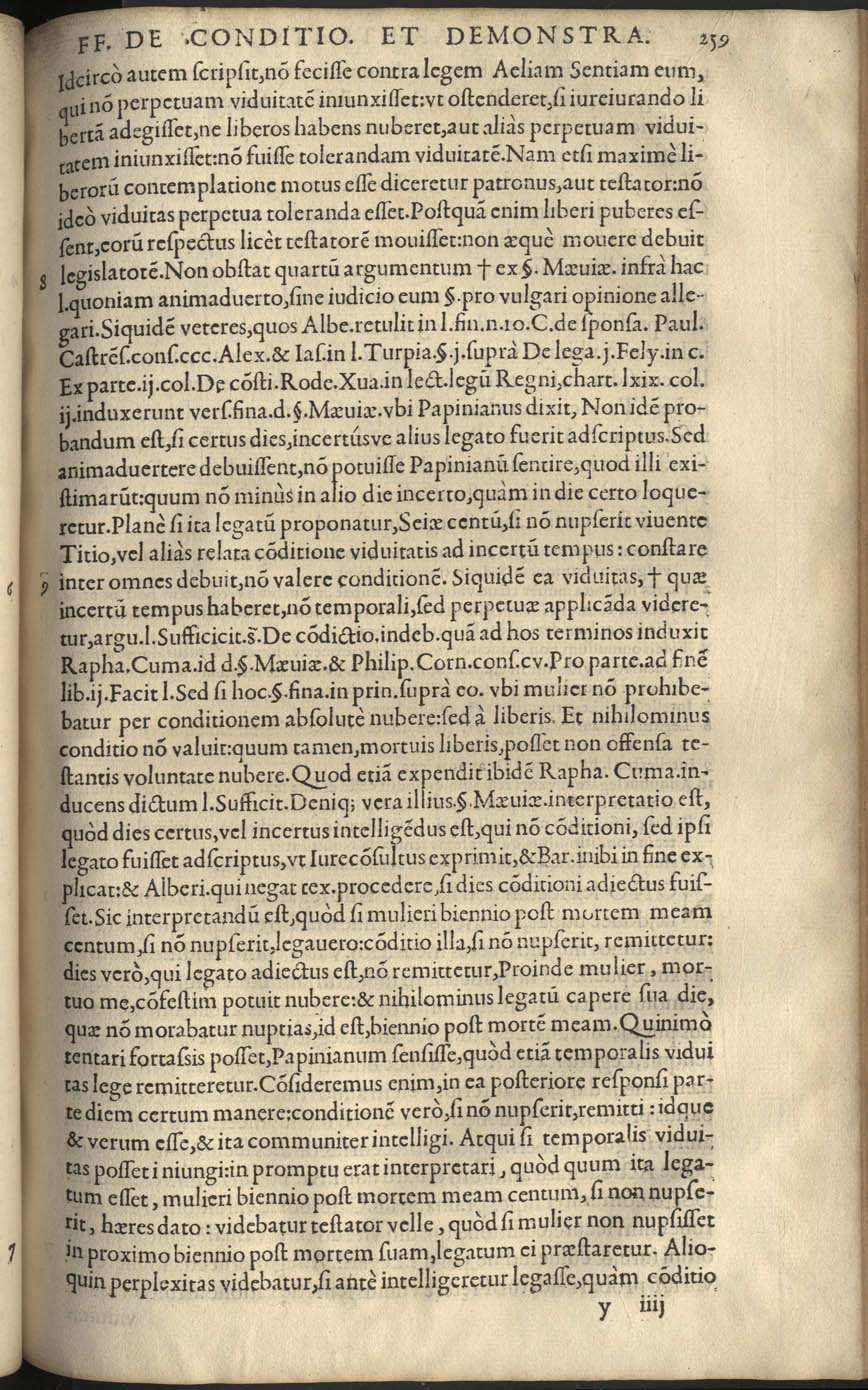 FF. DE CONDITIO. ET DEMONSTRA. 259
Idcircò autem ſcripſit,nõ feciſſe contra legem Aeliam Sentiam eum,
qui nõ perpetuam viduitatē iniunxiſſet:vt oſtenderet,ſi iureiurando li
bertã adegiſſet,ne liberos habens nuberet,aut aliàs perpetuam vidui-
tatem iniunxiſſet:nõ fuiſſe tolerandam viduitatē.Nam etſi maximè li-
berorũ contemplatione motus eſſe diceretur patronus,aut teſtator:nõ
ideò viduitas perpetua toleranda eſſet.Poſtquã enim liberi puberes eſ-
ſent,eorũ reſpectus licèt teſtatorē mouiſſet:non æquè mouere debuit
8 legislatorē.Non obſtat quartũ argumentum † ex §. Mæuiæ. infrà hac
l.quoniam animaduerto,ſine iudicio eum §.pro vulgari opinione alle-
gari.Siquidē veteres,quos Albe.retulit in l.fin.n.10.C.de ſponſa. Paul.
Caſtrēſ.conſ.ccc.Alex.& Iaſ.in l.Turpia.§.j.ſuprà De lega.j.Fely.in c.
Ex parte.ij.col.De cõſti.Rode.Xua.in lect.legũ Regni,chart.lxix. col.
ij.induxerunt verſ.fina.d.§.Mæuiæ.vbi Papinianus dixit, Non idē pro-
bandum eſt,ſi certus dies,incertúsve alius legato fuerit adſcriptus.Sed
animaduertere debuiſſent,nõ potuiſſe Papinianũ ſentire,quod illi exi-
ſtimarũt:quum nõ minùs in alio die incerto,quàm in die certo loque-
retur.Planè ſi ita legatũ proponatur,Seiæ centũ,ſi nõ nupſerit viuente
Titio,vel aliàs relata cõditione viduitatis ad incertũ tempus: conſtare
6 9 inter omnes debuit,nõ valere conditionē. Siquidē ea viduitas, † quæ
incertũ tempus haberet,nõ temporali,ſed perpetuæ applicãda videre-
tur,argu.l.Sufficicit.§.De cõdictio.indeb.quã ad hos terminos induxit
Rapha.Cuma.id d.§.Mæuiæ.& Philip.Corn.conſ.cv.Pro parte.ad finē
lib.ij.Facit l.Sed ſi hoc.§.fina.in prin.ſuprà eo. vbi mulier nõ prohibe-
batur per conditionem abſolutè nubere:ſed à liberis. Et nihilominus
conditio nõ valuit:quum tamen,mortuis liberis,poſſet non offenſa te-
ſtantis voluntate nubere.Quod etiã expendit ibidē Rapha. Cuma.in-
ducens dictum l.Sufficit.Deniq; vera illius.§.Mæuiæ.interpretatio eſt,
quòd dies certus,vel incertus intelligēdus eſt,qui nõ cõditioni, ſed ipſi
legato fuiſſet adſcriptus,vt Iurecõſultus exprimit,&Bar.inibi in fine ex-
plicat:& Alberi.qui negat tex.procedere,ſi dies cõditioni adiectus fuiſ-
ſet.Sic interpretandũ eſt,quòd ſi mulieri biennio poſt mortem meam
centum,ſi nõ nupſerit,legauero:cõditio illa,ſi nõ nupſerit, remittetur:
dies verò,qui legato adiectus eſt,nõ remittetur,Proinde mulier, mor-
tuo me,cõfeſtim potuit nubere:& nihilominus legatũ capere ſua die,
quæ nõ morabatur nuptias,id eſt,biennio poſt mortē meam.Quinimò
tentari fortaſsis poſſet,Papinianum ſenſiſſe,quòd etiã temporalis vidui
tas lege remitteretur.Cõſideremus enim,in ea poſteriore reſponſi par-
te diem certum manere:conditionē verò,ſi nõ nupſerit,remitti : idque
& verum eſſe,& ita communiter intelligi. Atqui ſi temporalis vidui-
tas poſſet i niungi:in promptu erat interpretari, quòd quum ita lega-
tum eſſet, mulieri biennio poſt mortem meam centum, ſi non nupſe-
rit, hæres dato : videbatur teſtator velle, quòd ſi mulier non nupſiſſet
in proximo biennio poſt mortem ſuam,legatum ei præſtaretur. Alio-
quin perplexitas videbatur,ſi antè intelligeretur legaſſe,quàm cõditio
y iiij